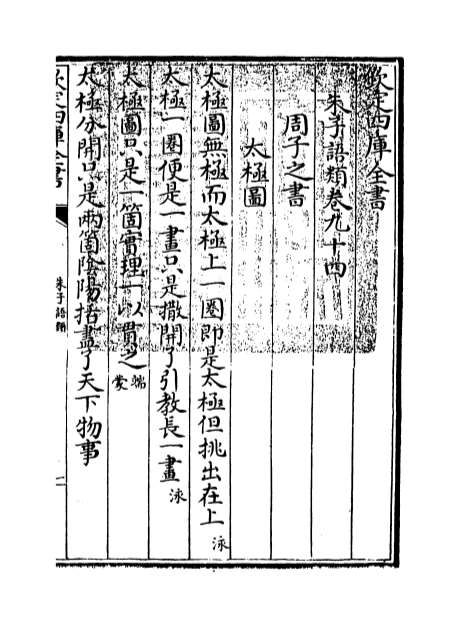 欽定四庫全書
朱子語類卷九十四
周子之書
太極圖
太極圖無極而太極上一圈即是太極但挑出在上泳
太極一圈便是一畫只是撒開了引教長一畫泳
太極圖只是一箇實理一以貫之端蒙
太極分開只是兩箇陰陽括盡了天下物事
欽定四庫全書
朱子語類
一